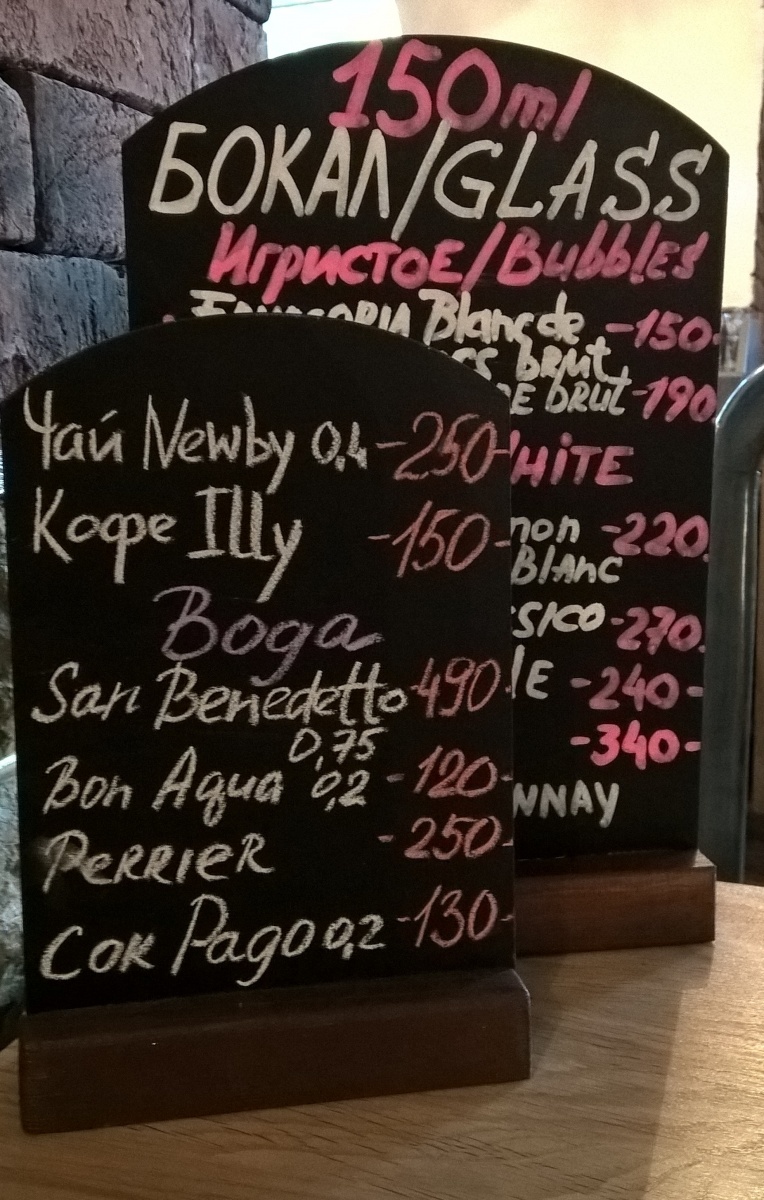 150ml
БОКАЛ/GLASS
Игристое/Bubbles
Blanc de -150-
brut
brut -190
-220
Blanc
-270
-240-
-340-
Чай Newby 0,4 -250-
Кофе Illy -150-
Вода
San Benedetto 490-
0,75
Bon Aqua 0,2 -120-
PERRIER -250-
Сок Pago 0,2 -130-